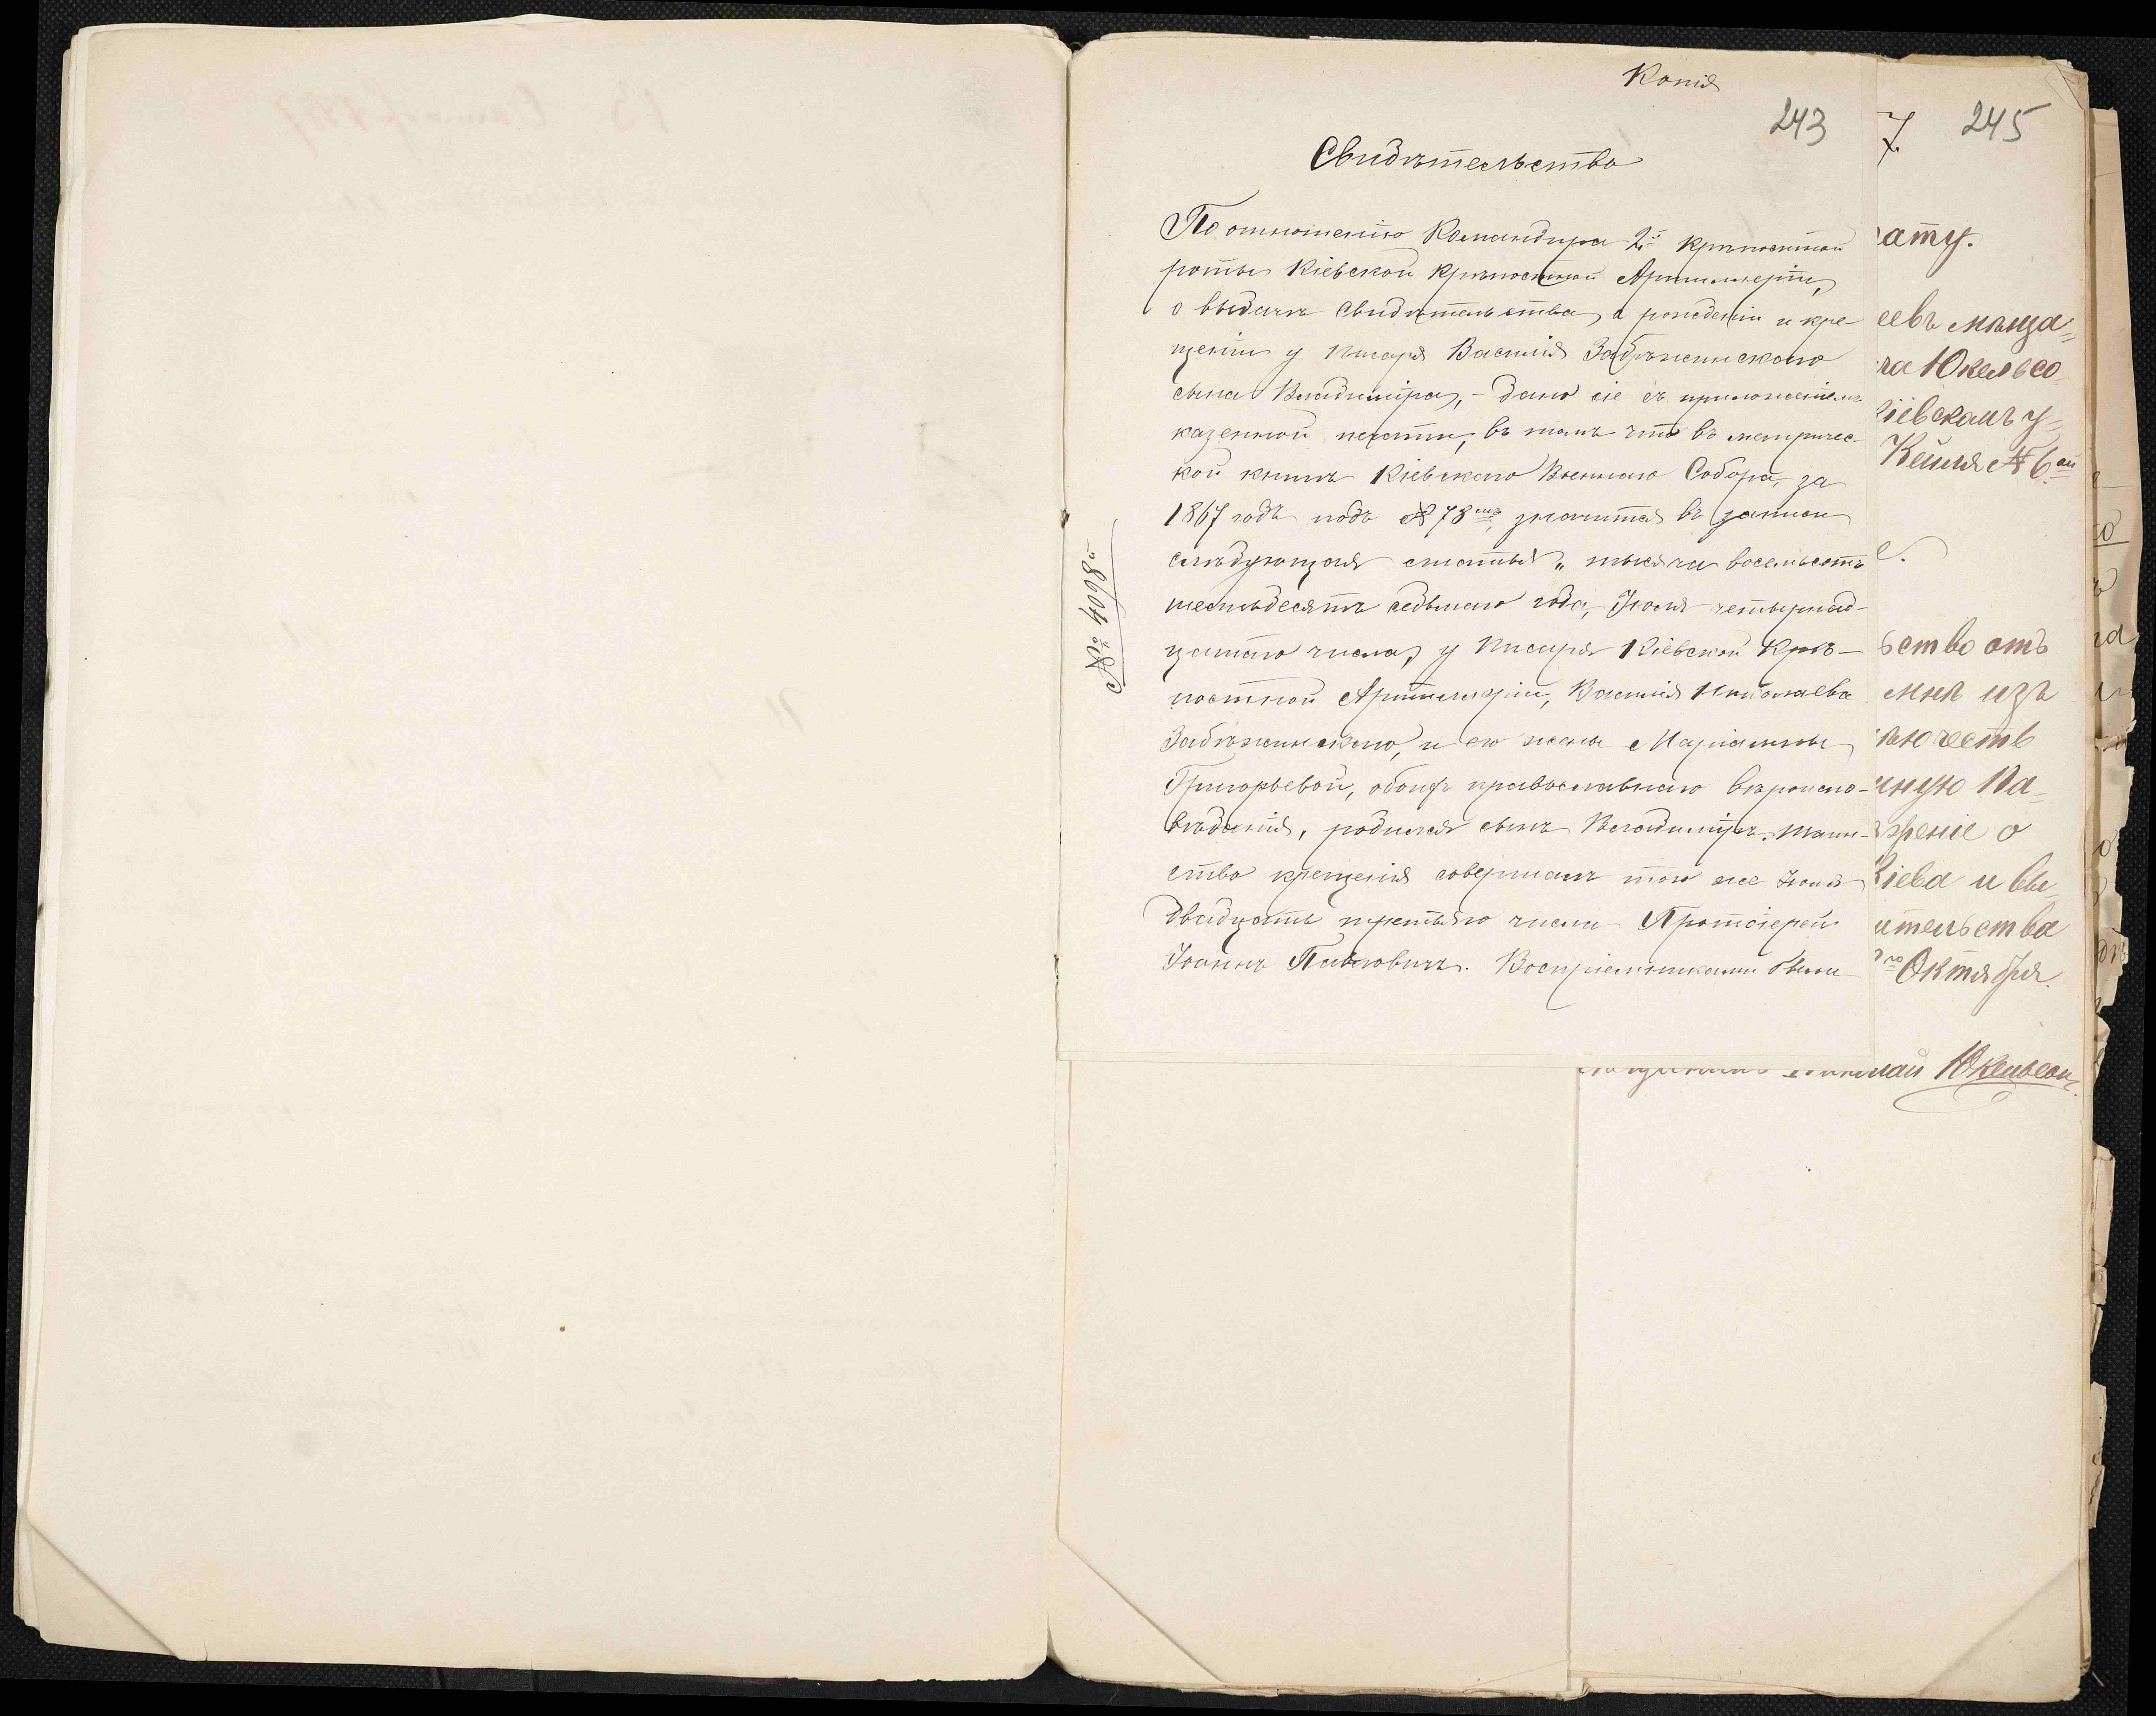 Копія
243
Свидѣтельство
По отношенію Командира 2й крѣпостной
роты Кіевской Крѣпостной Артиллеріи,
о выдачѣ свидѣтельства о рожденіи и кре-
щеніи у писаря Василія Забѣжинскаго
сына Владиміра, - дано сіе съ приложеніемъ
казенной печати, въ томъ что въ метричес-
кой книгѣ Кіевскаго Военнаго Собора, за
1867 годъ подъ № 78мъ, значится въ записи
слѣдующая статья „ тысяча восемьсотъ
шестьдесятъ седьмаго года, Іюля четырнад-
цатаго числа, у писаря Кіевской Крѣ-
постной Артиллеріи, Василія Николаева
Забѣжинскаго, и его жены Маріанны
Григорьевой, обоихъ православнаго вѣроиспо-
вѣданія, родился сынъ Владиміръ. Таин-
ство крещенія совершалъ того же Іюля
двадцать третьяго числа Протоіерей
Іоаннъ Павловичъ. Воспріемниками были
№ 4098й
7. 245
ату.
еевъ мѣща=
ча Юкельсо
Кіевскомъ у=
Кейля № 6ой
е.
ьство отъ
мнѣ изъ
ѣю честь
нную Па=
зрѣніе о
Кіева и вы=
ительства
го Октября.
Николай Юкельсон